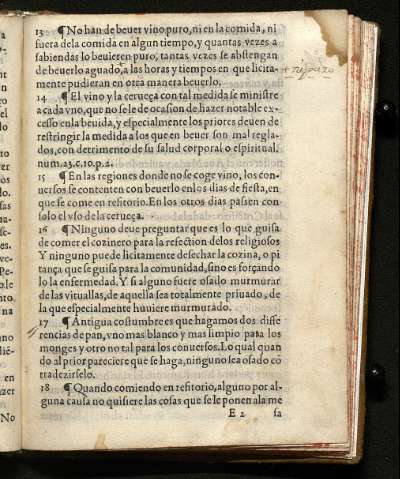 13 ¶ No han de beuer vino puro, ni en la comida, ni
fuera dela comida en algun tiempo, y quantas vezes a
sabiendas lo beuieren puro, tantas vezes se abstengan
de beuerlo aguado, a las horas y tiempos en que licita-
mente pudieran en otra manera beuerlo.
14 ¶ El vino y la cerueça con tal medida se ministre
a cada vno, que no se le de ocasion de hazer notable ex-
cesso enla beuida, y especialmente los priores deuen de
restringir la medida a los que en beuer son mal regla-
dos, con detrimento de su salud corporal o espiritual.
num.23.c.10.p.2.
15 ¶ En las regiones donde no se coge vino, los con-
uersos se contenten con beuerlo enlos dias de fiesta, en
que se come en refitorio. En los otros dias passen con
solo el vso dela cerueça.
16 ¶ Ninguno deue preguntar que es lo que guisa
de comer el cozinero para la refection delos religiosos
Y ninguno puede licitamente desechar la cozina, o pi
tança que se guisa para la comunidad, sino es forçando
lo la enfermedad. Y si alguno fuere osado murmurar
de las vituallas, de aquella sea totalmente priuado, de
la que especialmente huuiere murmurado.
17 ¶ Antigua costumbre es que hagamos dos diffe
rencias de pan, vno mas blanco y mas limpio para los
monges y otro no tal para los conuersos. Lo qual quan
do al prior pareciere que se haga, ninguno sea osado cō
tradezirselo.
18 ¶ Quando comiendo en refitorio, alguno por al-
guna causa no quisiere las cosas que se le ponen ala me
E 2 sa